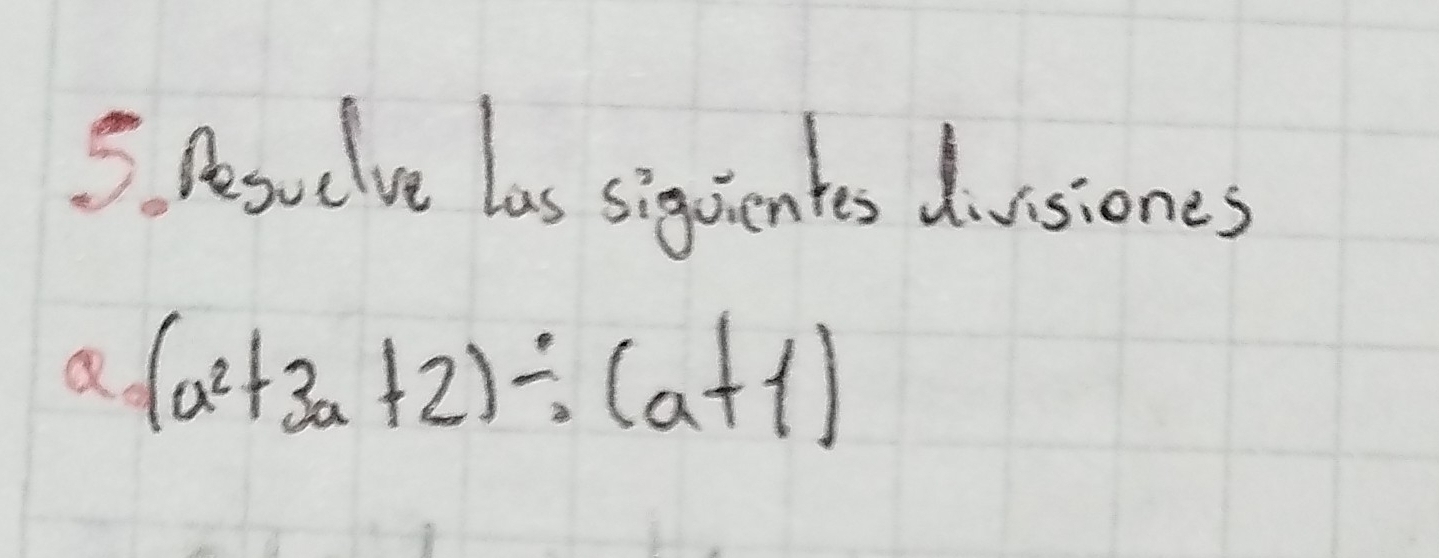 5. Resuelve las siguientes divisiones
a. (a²+3a+2)÷(a+1)